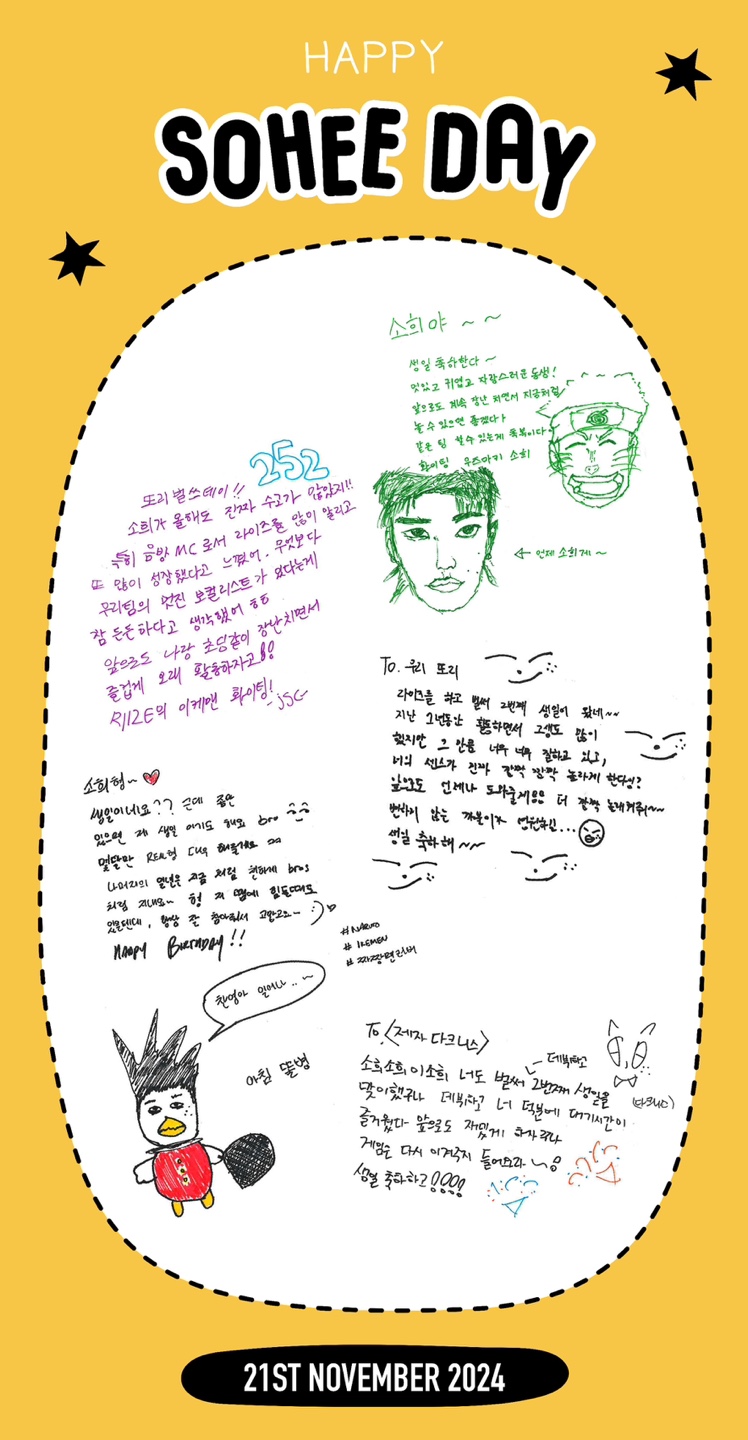 HAPPY
SOHEE DAY
소희야 ~ ~
생일 축하한다 ~
멋있고 귀엽고 자랑스러운 동생!
앞으로도 계속 장난 치면서 지금처럼
놀 수 있으면 좋겠다
같은 팀 할 수 있는게 축복이다
화이팅 우즈마키 소희
← 언제 소희게 ~
252
또리 벌쓰데이!!
소희가 올해도 진짜 수고가 많았지!!
특히 음방 MC로서 라이즈를 많이 알리고
또 많이 성장했다고 느꼈어. 무엇보다
우리팀의 멋진 보컬리스트가 있다는게
참 든든하다고 생각했어 ㅎㅎ
앞으로도 나랑 초딩같이 장난치면서
즐겁게 오래 활동하자고!!
RIIZE의 이케맨 화이팅!
-JSC-
To. 우리 또리
라이즈를 하고 벌써 2번째 생일이 왔네~~
지난 1년동안 활동하면서 고생도 많이
했지만 그 만큼 너무 너무 잘하고 있고,
너의 센스가 진짜 깜짝 깜짝 놀라게 한다잉?
앞으로도 언제나 도와줄게 더 깜짝 놀래켜줘~~
변하지 않는 까불이가 영원하길...
생일 축하해~~
소희형~ ♥
생일이네요?? 근데 좀만
있으면 제 생일 이기도 해요 bro ^^
몇달만 REAL형 대우 해줄게요
나머지의 일년은 지금 처럼 편하게 bros
처럼 지내요~ 형 저 땜에 힘든때도
있을텐데, 항상 잘 참아줘서 고맙고요~ :)
HAPPY BIRTHDAY!!
#NARUTO
#IKEMEN
#짜장면러버
찬영아 일어나..~
아침 똘병
To. <제자 다크니스>
소희소희 이소희 너도 벌써 2번째 생일을
데뷔하고
맞이했구나 데뷔하고 너 덕분에 대기시간이
(다크니스)
즐거웠다 앞으로도 재밌게 하자구나
게임은 다시 이겨주지 들어와라
생일 축하하고!!!!
21ST NOVEMBER 2024